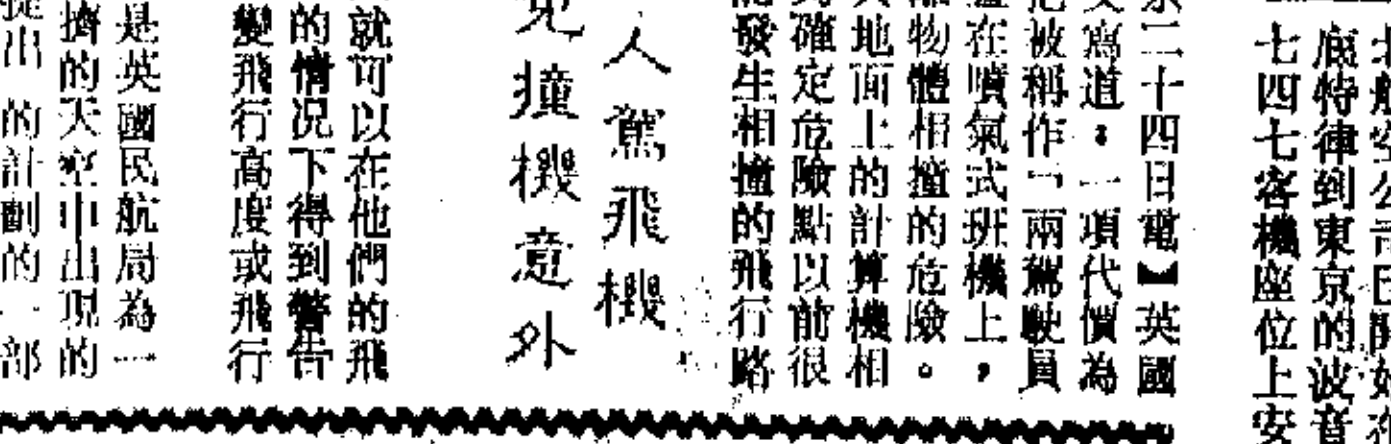 航空公司已開始在
底特律到東京的波音
七四七客機座位上安
二十四日電】英國
寫道：一項代價為
被稱作「兩駕駛員
在噴氣式班機上，
物體相撞的危險。
地面上的計算機相
確定危險點以前很
發生相撞的飛行路
人駕飛機
免撞機意外
就可以在他們的飛
的情況下得到警告
變飛行高度或飛行
是英國民航局為一
擠的天空中出現的
提出的計劃的一部